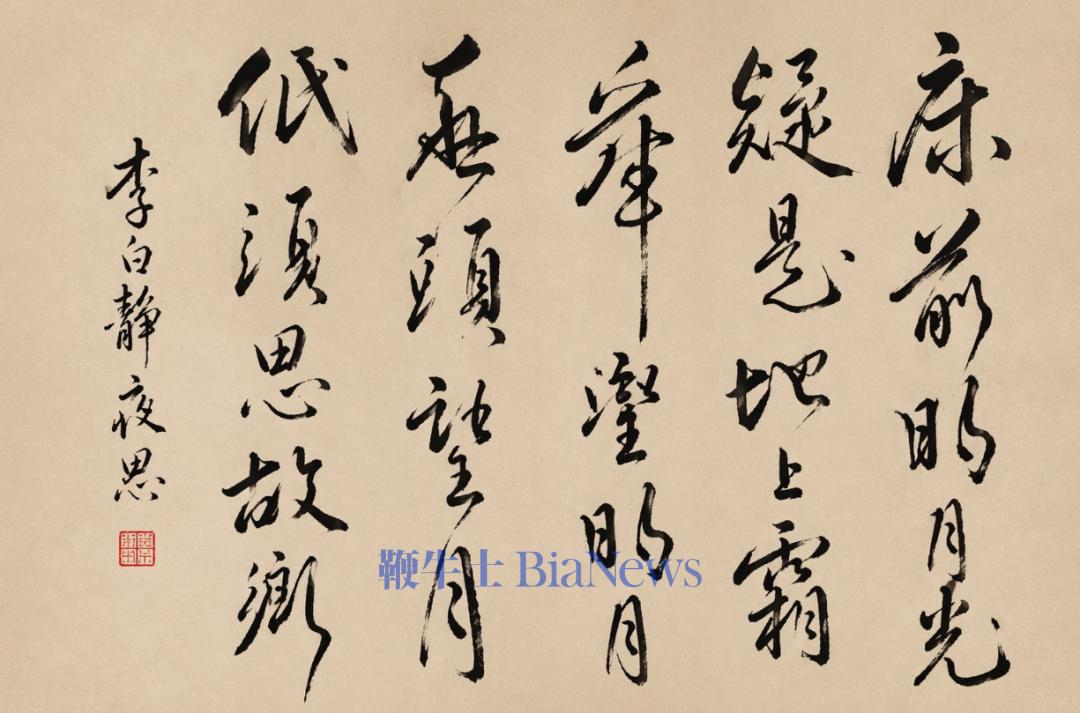 床前明月光
疑是地上霜
明月
頭望月
低須思故鄉
李白靜夜思
鞭牛士 BiaNews